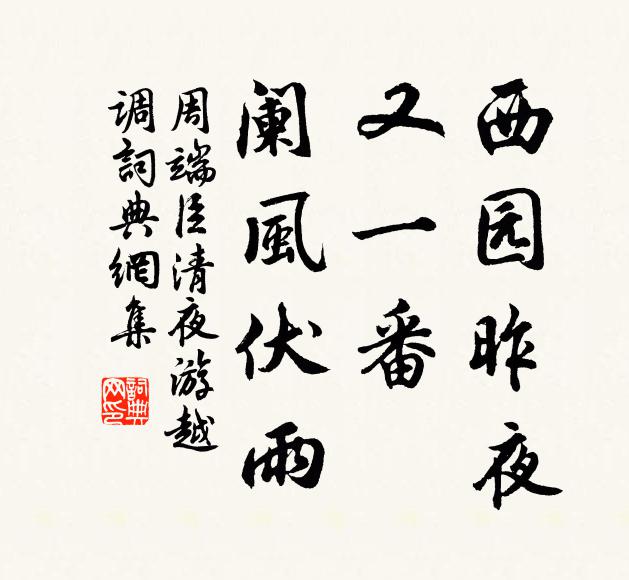 西园昨夜
又一番
阑風伏雨
周端臣清夜游越
调詞典網集
詞典网印